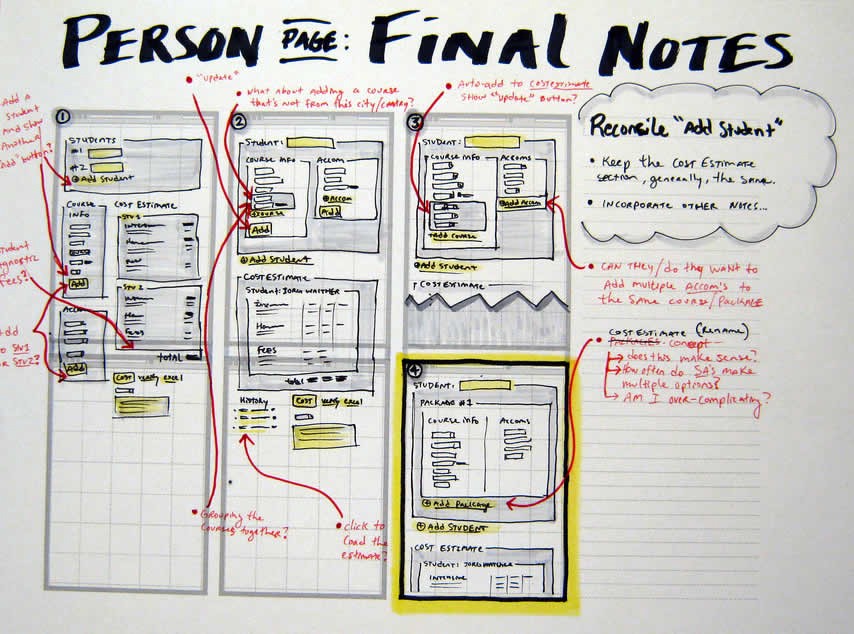 PERSON PAGE: FINAL NOTES
• "update"
• What about adding a course
that's not from this city/country?
• Auto-add to cost estimate
show "update" button?
Add a
student
and show
another
"add" button?
Student
Fees?
Add
to STU 1
or STU 2?
①
STUDENTS
#1
#2
⊕ Add Student
COURSE
INFO
Add
ACCOM
Add
COST ESTIMATE
STU 1
STU 2
Fees
TOTAL
COST verify excel
②
STUDENT:
COURSE INFO
ACCOM
⊕ COURSE
Add
⊕ ACCOM
Add
⊕ Add STUDENT
COST ESTIMATE
FEES
total
History
COST verify excel
• Grouping the
courses together?
• click to
load the
estimate?
③
STUDENT:
COURSE INFO
ACCOMS
+ADD COURSE
⊕ Add Accom
⊕ Add STUDENT
COST ESTIMATE
④
STUDENT:
PACKAGE #1
COURSE INFO
ACCOMS
⊕ Add Package
⊕ Add STUDENT
COST ESTIMATE
Reconcile "Add Student"
• Keep the COST ESTIMATE
section, generally, the same.
• INCORPORATE OTHER NOTES...
• CAN THEY/do they WANT to
Add multiple Accom's to
the same course/PACKAGE
• COST ESTIMATE (Rename)
PACKAGES concept—
→ does this make sense?
→ How often do SA's make
multiple options?
→ AM I over-complicating?